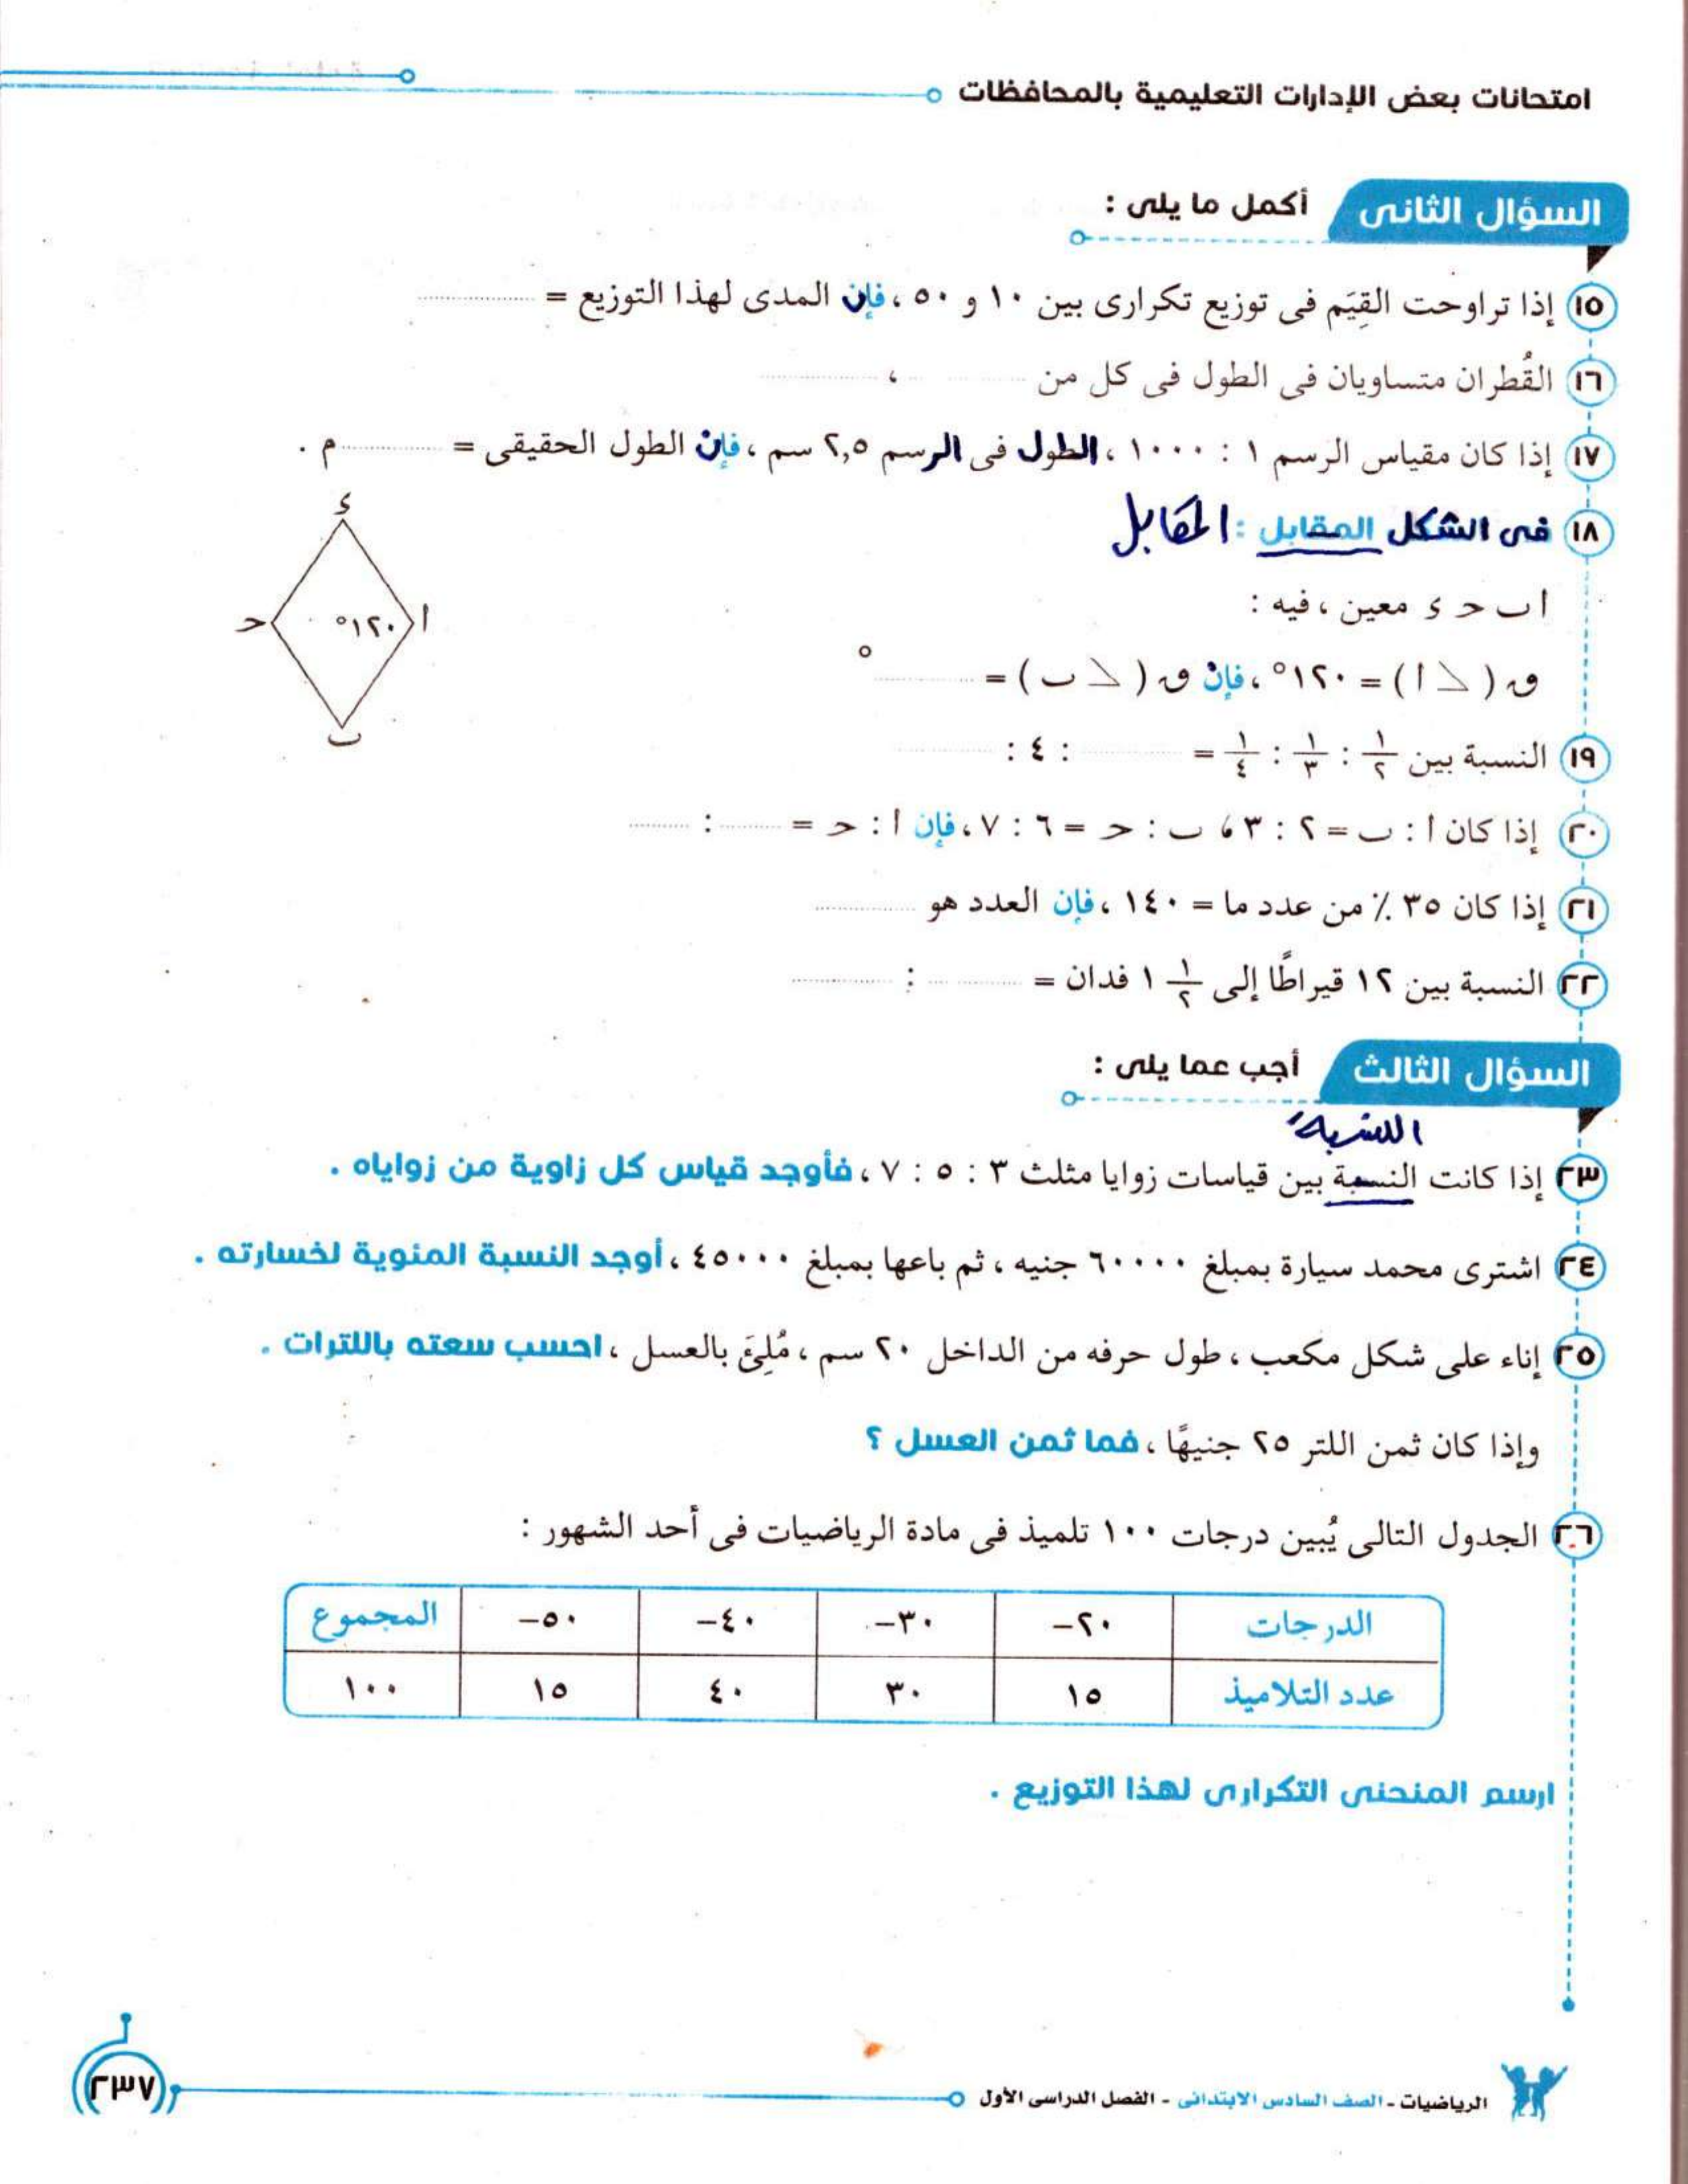 امتحانات بعض الإدارات التعليمية بالمحافظات
السؤال الثانى أكمل ما يلى :
١٥ إذا تراوحت القِيَم فى توزيع تكرارى بين ١٠ و ٥٠ ، فإن المدى لهذا التوزيع = ..........
١٦ القُطران متساويان فى الطول فى كل من .......... ، ..........
١٧ إذا كان مقياس الرسم ١ : ١٠٠٠ ، الطول فى الرسم ٢,٥ سم ، فإن الطول الحقيقى = .......... م .
١٨ فى الشكل المقابل : المقابل
ا ب ح ء معين ، فيه :
ق ( ∠ ا ) = ١٢٠° ، فإن ق ( ∠ ب ) = ..........°
ء
ا
١٢٠°
ح
ب
١٩ النسبة بين ١/٢ : ١/٣ : ١/٤ = .......... : ٤ : ..........
٢٠ إذا كان ا : ب = ٢ : ٣ ، ب : ح = ٦ : ٧ ، فإن ا : ح = .......... : ..........
٢١ إذا كان ٣٥ ٪ من عدد ما = ١٤٠ ، فإن العدد هو ..........
٢٢ النسبة بين ١٢ قيراطًا إلى ١/٢ ١ فدان = .......... : ..........
السؤال الثالث أجب عما يلى :
النسبة
٢٣ إذا كانت النسبة بين قياسات زوايا مثلث ٣ : ٥ : ٧ ، فأوجد قياس كل زاوية من زواياه .
٢٤ اشترى محمد سيارة بمبلغ ٦٠٠٠٠ جنيه ، ثم باعها بمبلغ ٤٥٠٠٠ ، أوجد النسبة المئوية لخسارته .
٢٥ إناء على شكل مكعب ، طول حرفه من الداخل ٢٠ سم ، مُلِئَ بالعسل ، احسب سعته باللترات .
وإذا كان ثمن اللتر ٢٥ جنيهًا ، فما ثمن العسل ؟
٢٦ الجدول التالى يُبين درجات ١٠٠ تلميذ فى مادة الرياضيات فى أحد الشهور :
الدرجات ٢٠– ٣٠– ٤٠– ٥٠– المجموع
عدد التلاميذ ١٥ ٣٠ ٤٠ ١٥ ١٠٠
ارسم المنحنى التكرارى لهذا التوزيع .
الرياضيات - الصف السادس الابتدائى - الفصل الدراسى الأول
٢٣٧